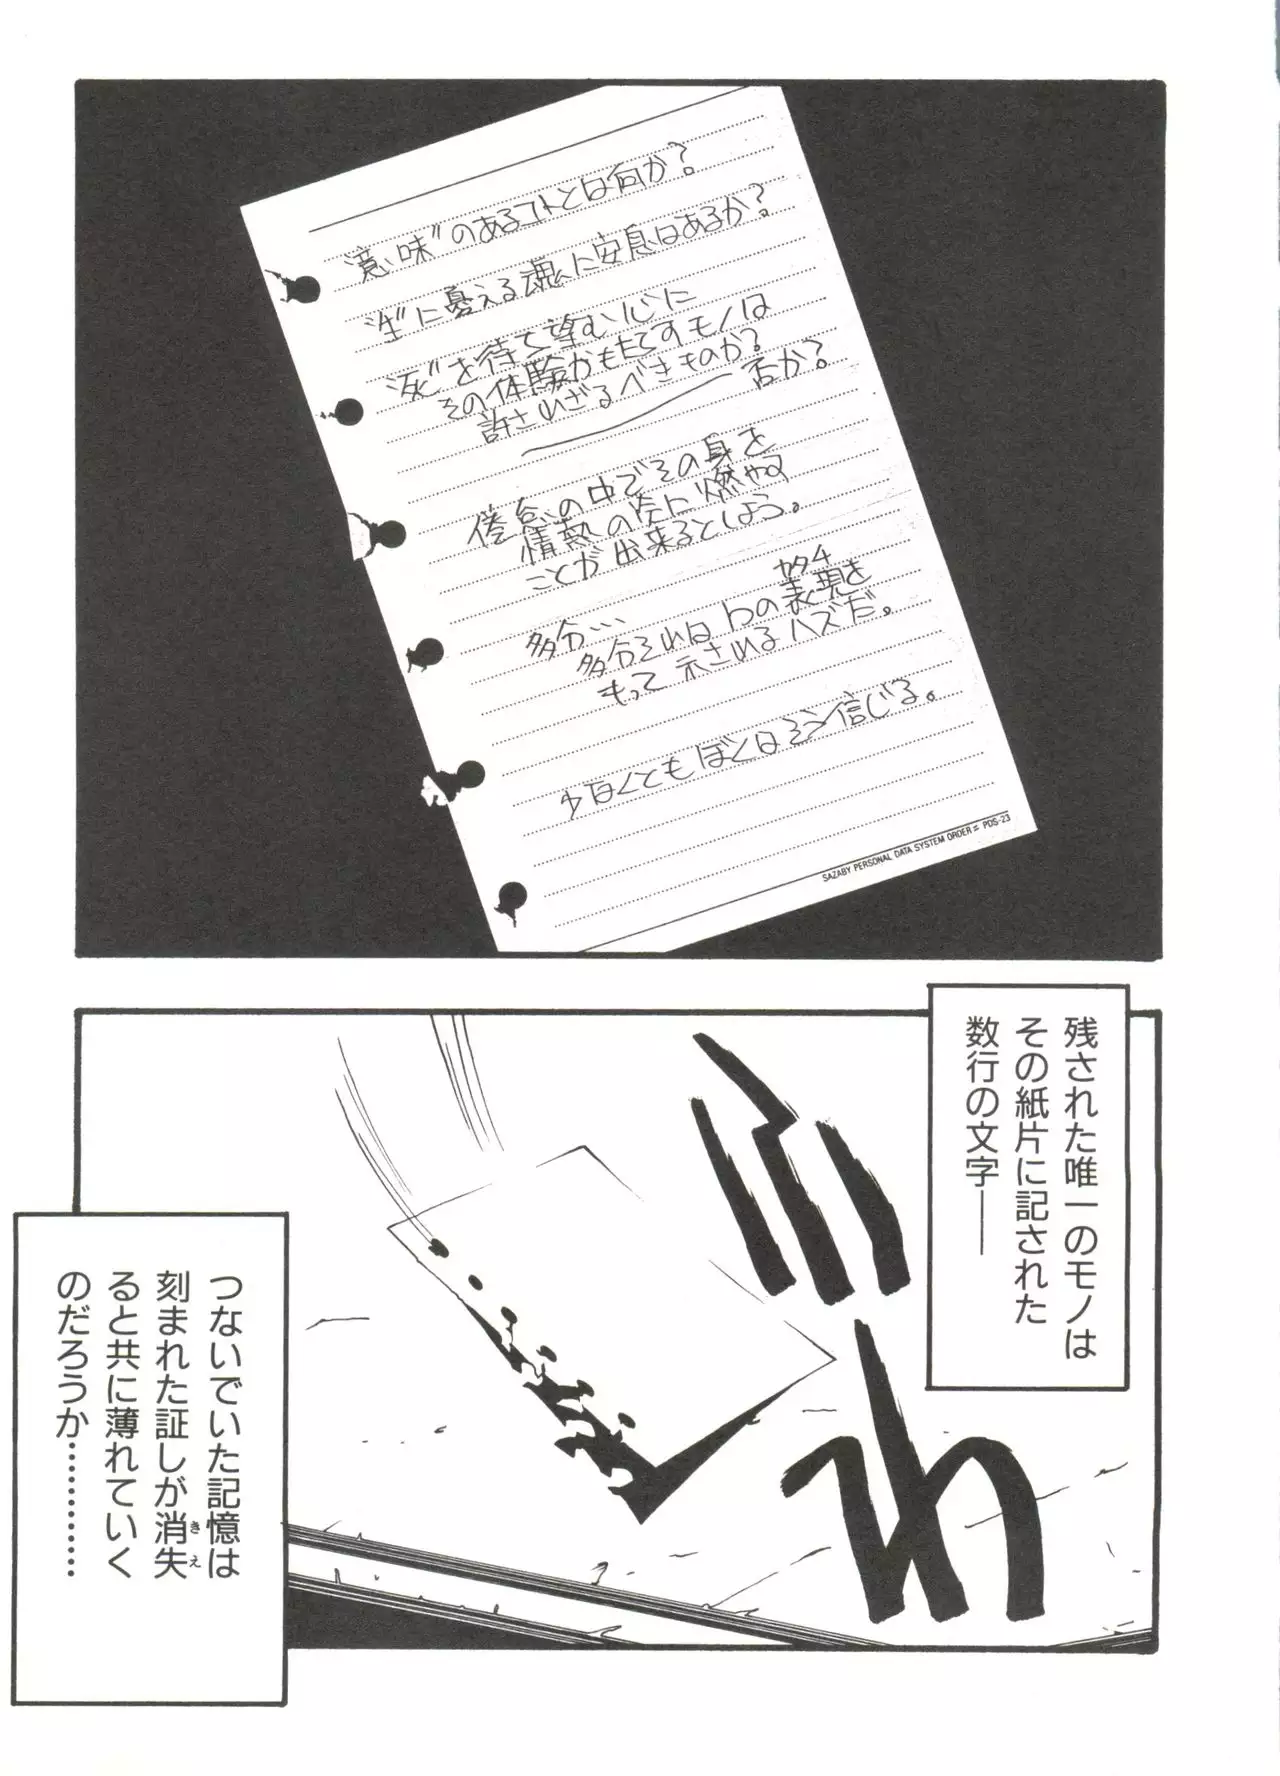 "意味"のあるコトとは何か?
"生"に憂える魂に安息はあるか?
"死"を待ち望む心に
その体験がもたらすモノは
許されざるべきものか?
――否か?
倦怠の中でその身を
情熱の炎に燃やす
ことが出来るとしよう。
多分…
多分それは1つの表現を
カタチ
もって示されるハズだ。
少なくともぼくはそう信じる。
SAZABY PERSONAL DATA SYSTEM ORDER = PDS-23
残された唯一のモノは
その紙片に記された
数行の文字――
つないでいた記憶は
刻まれた証しが消失
きえ
ると共に薄れていく
のだろうか…………